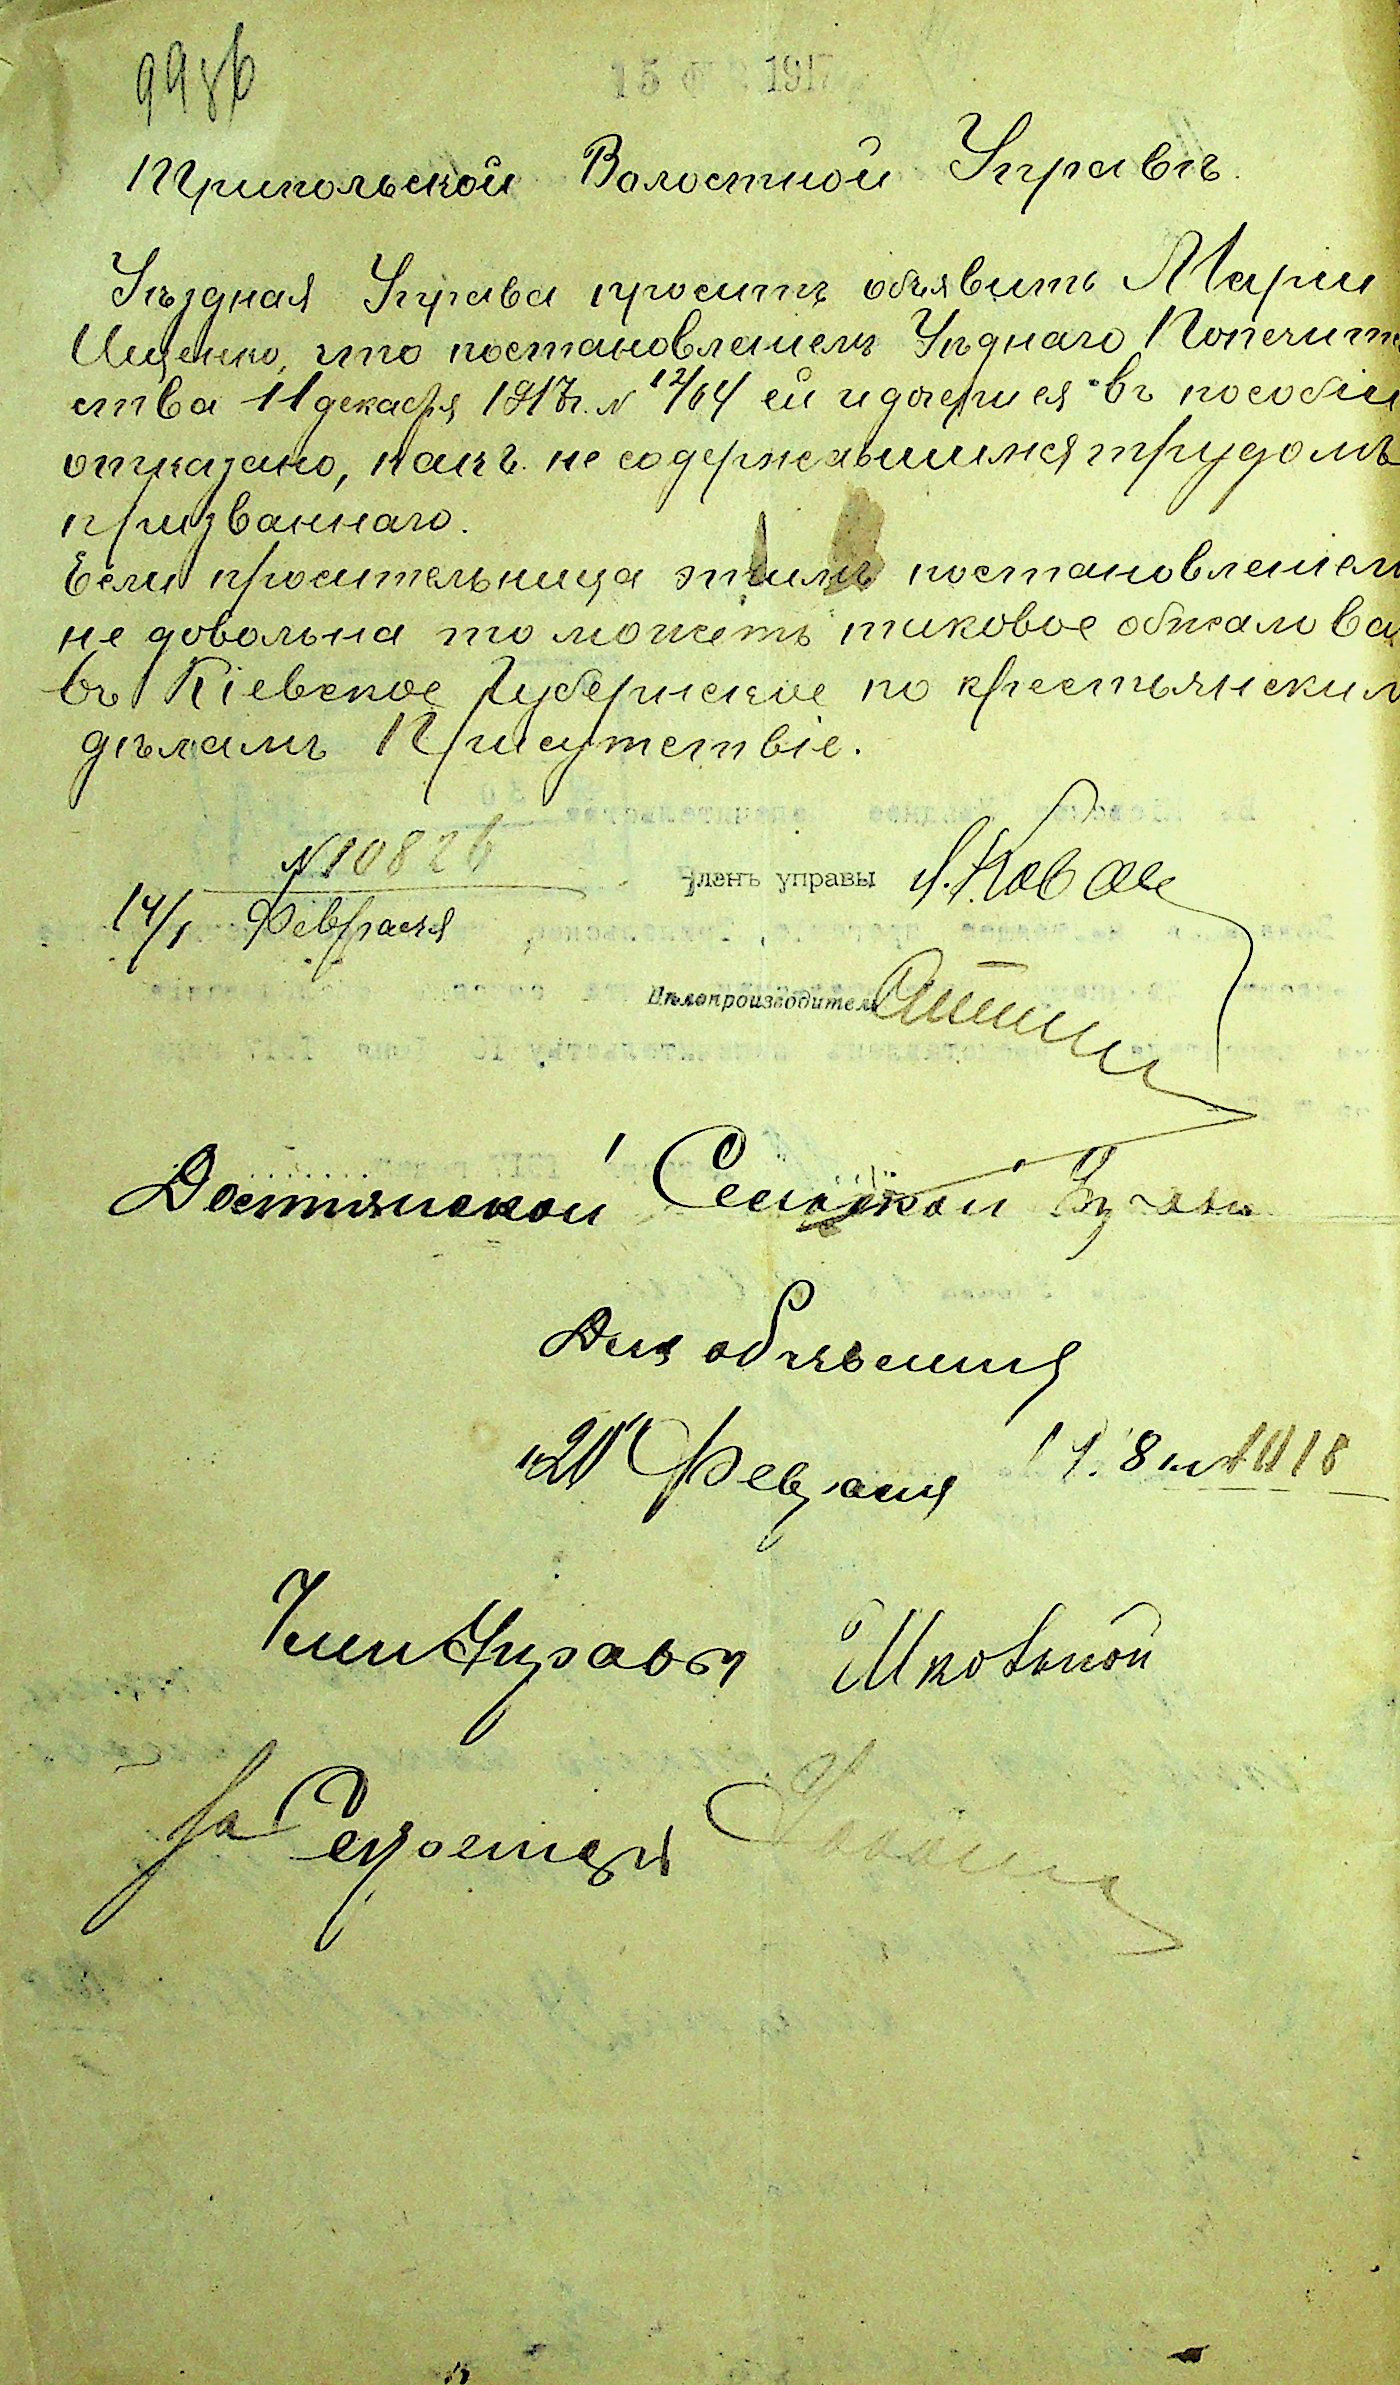 998б
15 1917
Трипольской Волостной Управѣ.
Уѣздная Управа проситъ объявить Маріи
Ищенко, что постановленіемъ Уѣзднаго Попечит
ства 11 декабря 1917 г. № 12/64 ей и дочери ея въ пособіи
отказано, какъ не содержавшимся трудомъ
призваннаго.
Если просительница этимъ постановленіем
не довольна то можетъ таковое обжалова
въ Кіевское Губернское по крестьянским
дѣламъ Присутствіе.
№ 10826
14/1 Февраля
Членъ управы
Дѣлопроизводитель
Сельской Управѣ
Для объявленія
20 Февраля 191 8 № 1018
Член Управы
За Секретаря